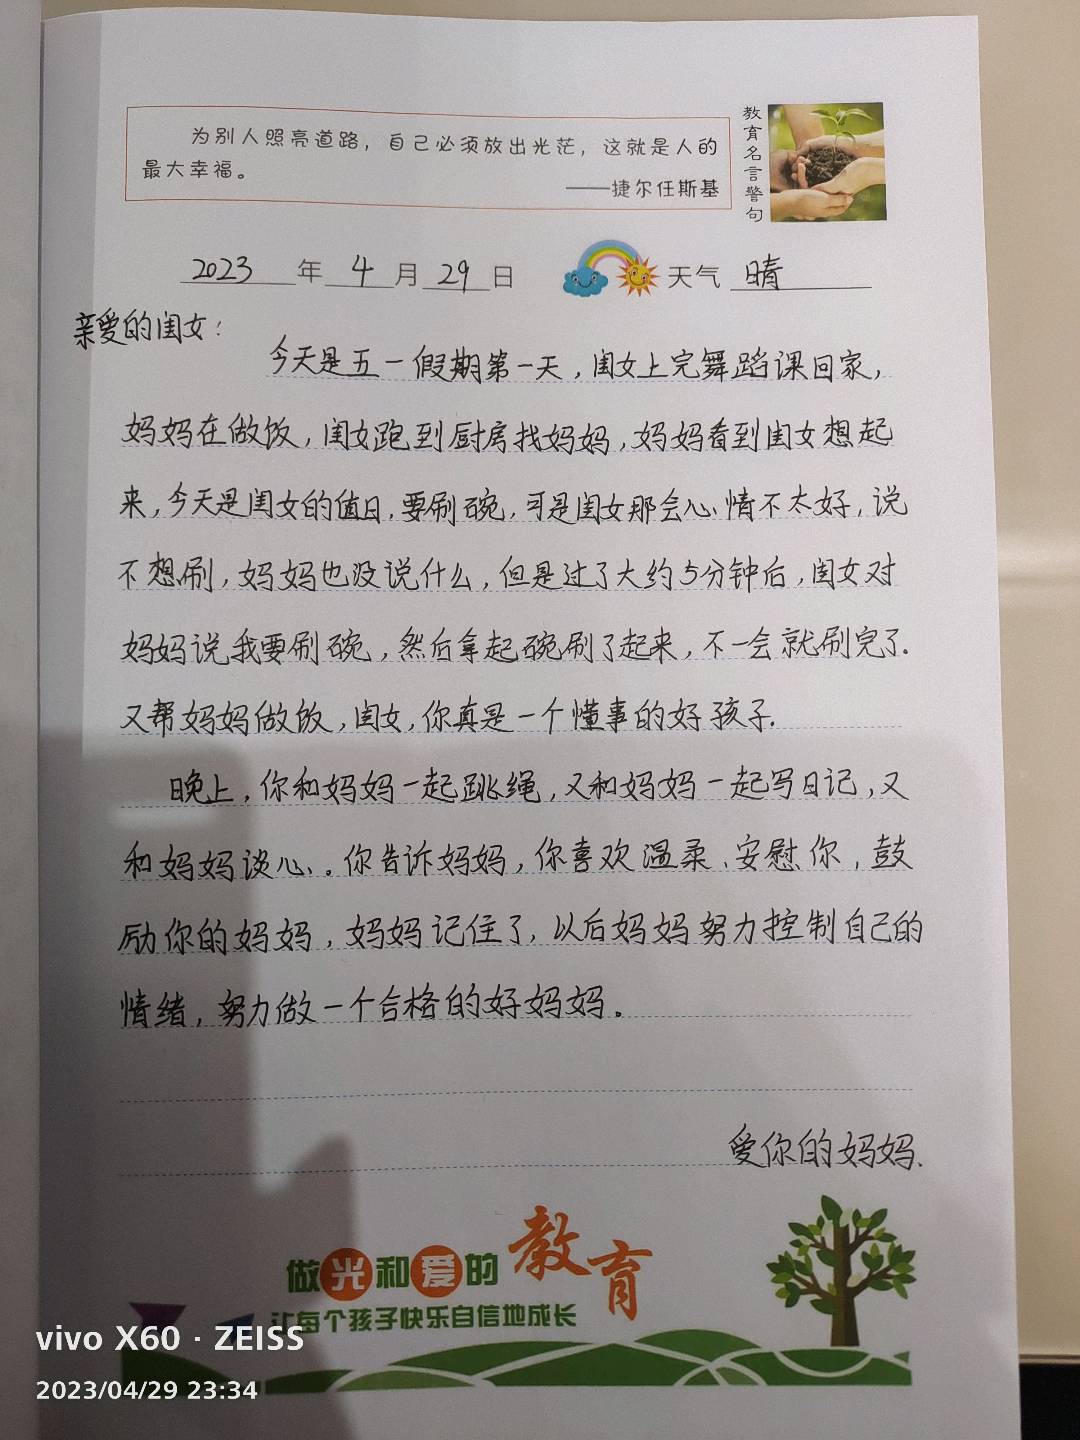 为别人照亮道路，自己必须放出光芒，这就是人的
最大幸福。
——捷尔任斯基
教育名言警句
2023 年 4 月 29 日 天气 晴
亲爱的闺女：
今天是五一假期第一天，闺女上完舞蹈课回家，
妈妈在做饭，闺女跑到厨房找妈妈，妈妈看到闺女想起
来，今天是闺女的值日，要刷碗，可是闺女那会心情不太好，说
不想刷，妈妈也没说什么，但是过了大约5分钟后，闺女对
妈妈说我要刷碗，然后拿起碗刷了起来，不一会就刷完了.
又帮妈妈做饭，闺女，你真是一个懂事的好孩子.
晚上，你和妈妈一起跳绳，又和妈妈一起写日记，又
和妈妈谈心、。你告诉妈妈，你喜欢温柔、安慰你，鼓
励你的妈妈，妈妈记住了，以后妈妈努力控制自己的
情绪，努力做一个合格的好妈妈。
爱你的妈妈、
做光和爱的教育
让每个孩子快乐自信地成长
vivo X60 · ZEISS
2023/04/29 23:34